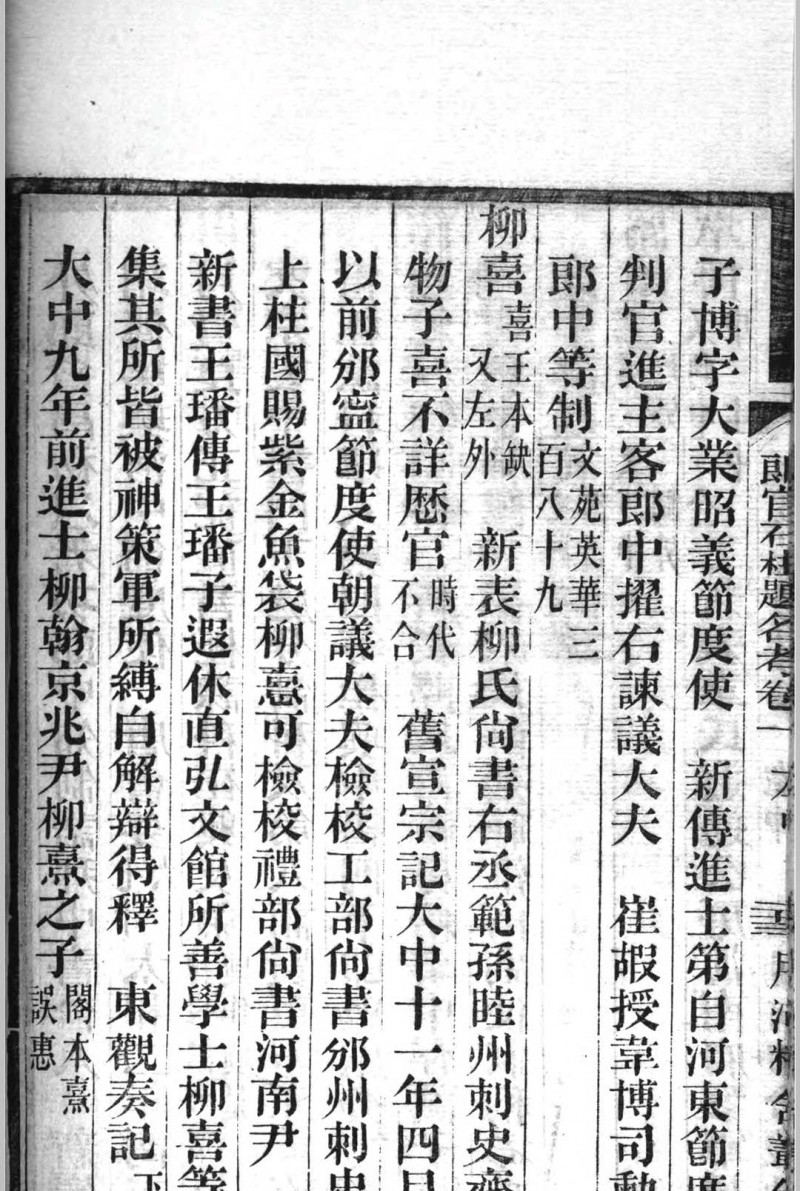 郎官石柱題名考卷一
子博字大業昭義節度使　新傳進士第自河東節度
判官進主客郎中擢右諫議大夫　崔嘏授韋博司勳
郎中等制文苑英華三百八十九
柳喜喜王本缺又左外　新表柳氏尙書右丞範孫睦州刺史齊
物子喜不詳歷官時代不合　舊宣宗記大中十一年四月
以前邠寧節度使朝議大夫檢校工部尙書邠州刺史
上柱國賜紫金魚袋柳憙可檢校禮部尙書河南尹
新書王璠傳王璠子遐休直弘文館所善學士柳喜等
集其所皆被神策軍所縛自解辯得釋　東觀奏記下
大中九年前進士柳翰京兆尹柳熹之子閣本熹誤惠